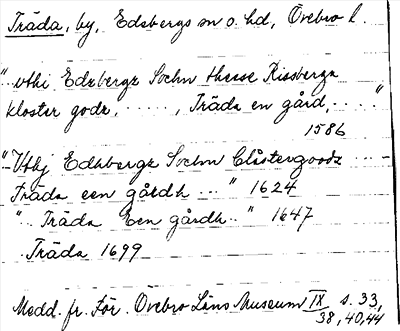 Träda, by, Edsbergs sn o. hd, Örebro l.
"uthi Edzbergz Sochn thesse Rissberga
kloster godz, ..... , Träda en gård, ...."
1586
"Uthj Edhbergz Sochn Clåstergoodz ....
Träda een gårdh ..." 1624
".. Träda Een gårdh.." 1647
Träda 1699
Medd. fr. För. Örebro Läns Museum IX s. 33,
38, 40, 44